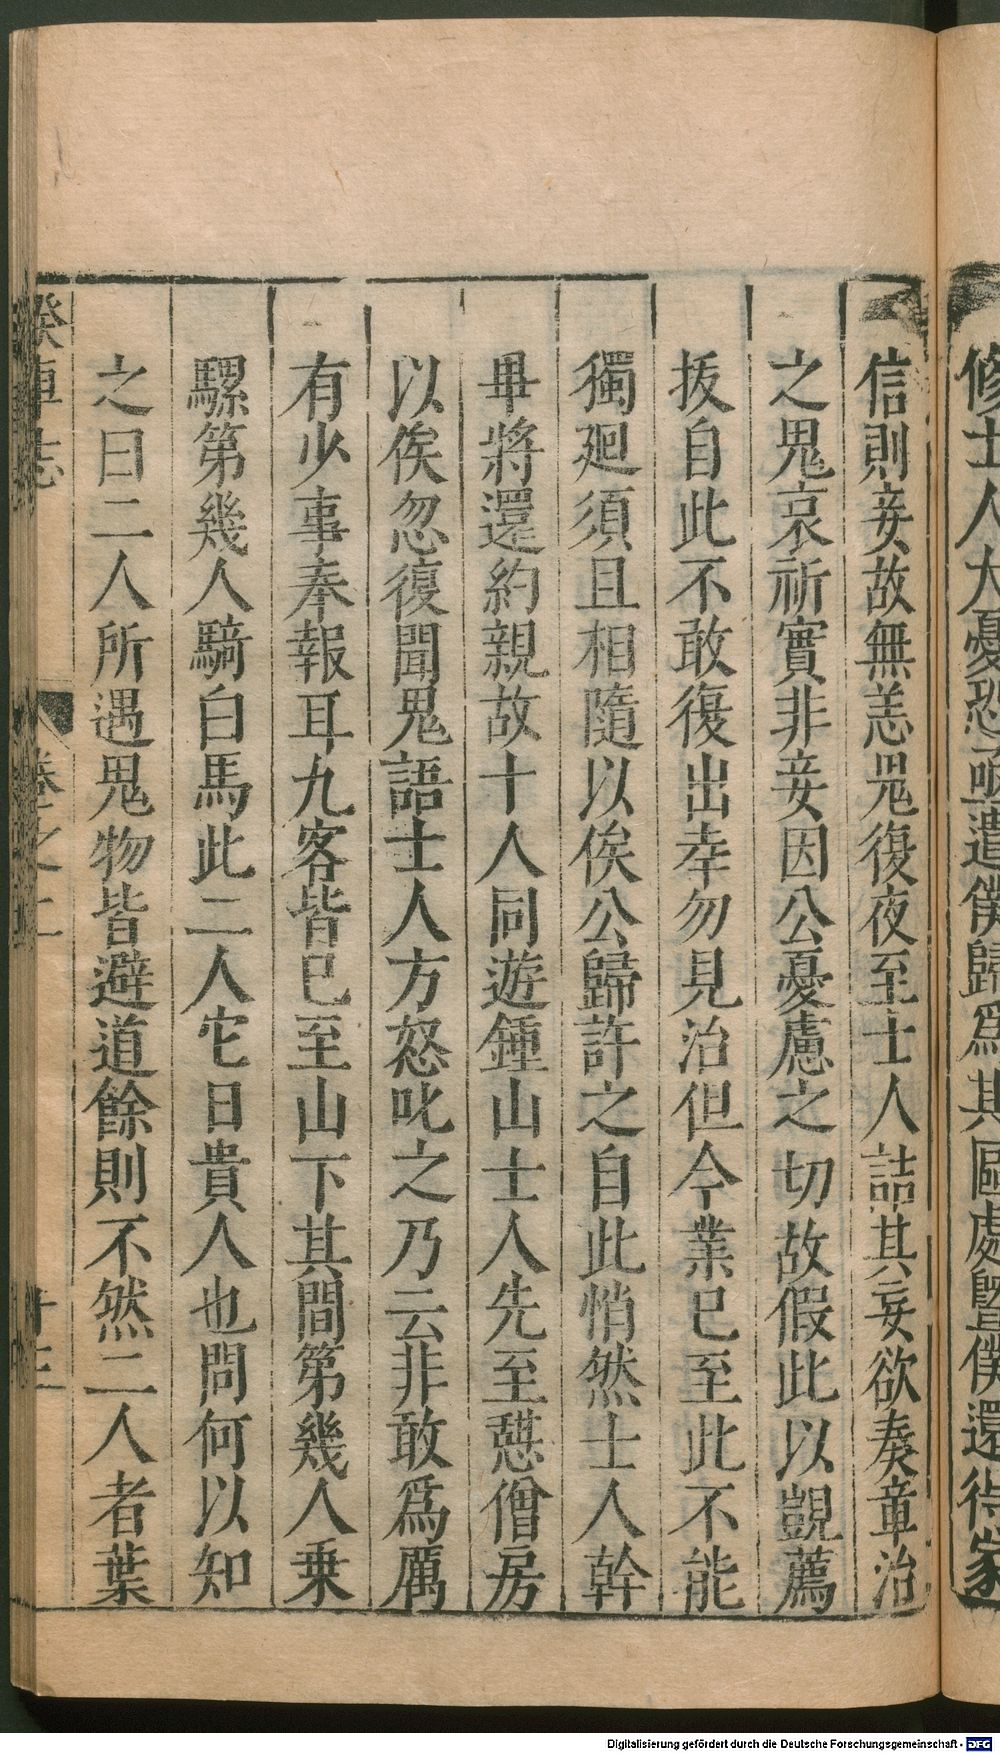 修士人大憂恐亟遣僕歸爲其區處暨僕還得家
信則妄故無恙鬼復夜至士人詰其妄欲奏章治
之鬼哀祈實非妄因公憂慮之切故假此以覬薦
拔自此不敢復出幸勿見治但今業已至此不能
獨廻須且相隨以俟公歸許之自此悄然士人幹
畢將還約親故十人同遊鍾山士人先至憇僧房
以俟忽復聞鬼語士人方怒叱之乃云非敢爲厲
有少事奉報耳九客皆已至山下其間第幾人乗
騾第幾人騎白馬此二人它日貴人也問何以知
之曰二人所遇鬼物皆避道餘則不然二人者葉
睽車志 卷之二 十三
Digitalisierung gefördert durch die Deutsche Forschungsgemeinschaft - DFG